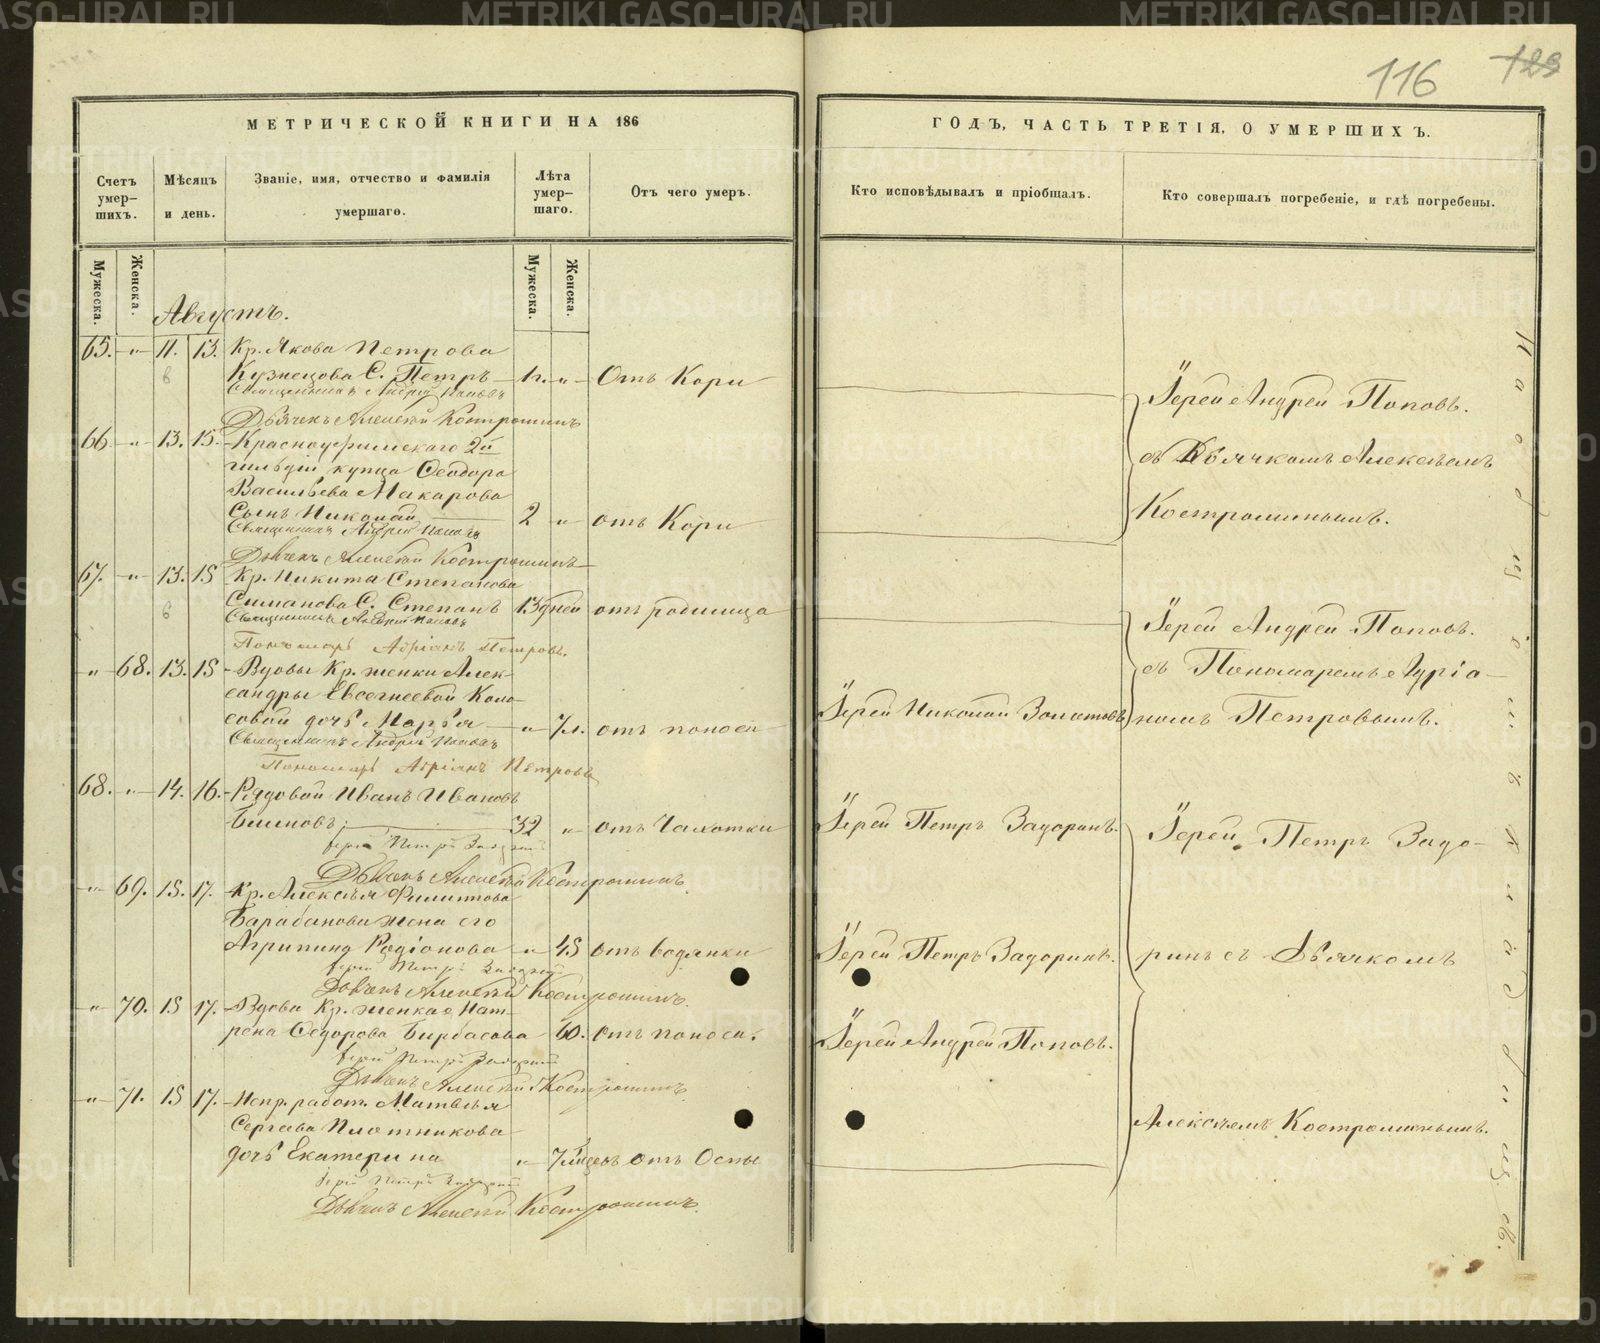 116
129
МЕТРИЧЕСКОЙ КНИГИ НА 186
ГОДЪ, ЧАСТЬ ТРЕТІЯ, О УМЕРШИХЪ.
Счетъ умер-шихъ.
Мѣсяцъ и день.
Званіе, имя, отчество и фамилія умершаго.
Лѣта умер-шаго.
Отъ чего умеръ.
Кто исповѣдывалъ и пріобщалъ.
Кто совершалъ погребеніе, и гдѣ погребены.
Мужеска.
Женска.
Мужеска.
Женска.
Августъ.
65. „ 11. 13. Кр. Якова Петрова
Кузнецова С. Петръ 1 г. „ Отъ Кори
Священникъ Андрей Поповъ
Дьячекъ Алексѣй Костроминъ
66 „ 13. 15. Красноуфимскаго 2й
гильдіи купца Ѳеодора
Васильева Макарова
Сынъ Николай 2 „ отъ Кори
Священникъ Андрей Поповъ
Дьячекъ Алексѣй Костроминъ
67. „ 13. 15 Кр. Никита Степанова
Симанова С. Степанъ 13 дней отъ родимца
Священникъ Андрей Поповъ
Пономарь Адріанъ Петровъ.
„ 68. 13. 15 Вдовы Кр. женки Алек-
сандры Евсегнеевой Коло-
совой дочь Марья „ 7 л. отъ поноса
Священникъ Андрей Поповъ
Пономарь Адріанъ Петровъ
68. „ 14. 16. Рядовой Иванъ Ивановъ
32 „ отъ Чахотки
Іерей Петръ Задоринъ
Дьячекъ Алексѣй Костроминъ.
„ 69. 15. 17. Кр. Алексѣя Филиппова
Барабанова жена его
Агрипина Родіонова „ 45 отъ водянки
Іерей Петръ Задоринъ
Дьячекъ Алексѣй Костроминъ.
„ 70. 15 17. Вдова Кр. женка Нат-
рена Ѳедорова Бирбасова 60. отъ поноса.
Іерей Петръ Задоринъ
Дьячекъ Алексѣй Костроминъ
„ 71. 15 17. Непр. работ. Матвѣя
Сергѣева Плотникова
дочь Екатерина „ 7 мѣсяц. отъ Оспы
Іерей Петръ Задоринъ
Дьячекъ Алексѣй Костроминъ.
Іерей Николай Золотовъ
Іерей Петръ Задоринъ.
Іерей Петръ Задоринъ.
Іерей Андрей Поповъ.
Іерей Андрей Поповъ.
съ Дьячкомъ Алексѣемъ
Костроминымъ.
Іерей Андрей Поповъ.
съ Пономаремъ Адріа-
номъ Петровымъ.
Іерей Петръ Задо-
ринъ съ Дьячкомъ
Алексѣемъ Костроминымъ.
METRIKI.GASO-URAL.RU